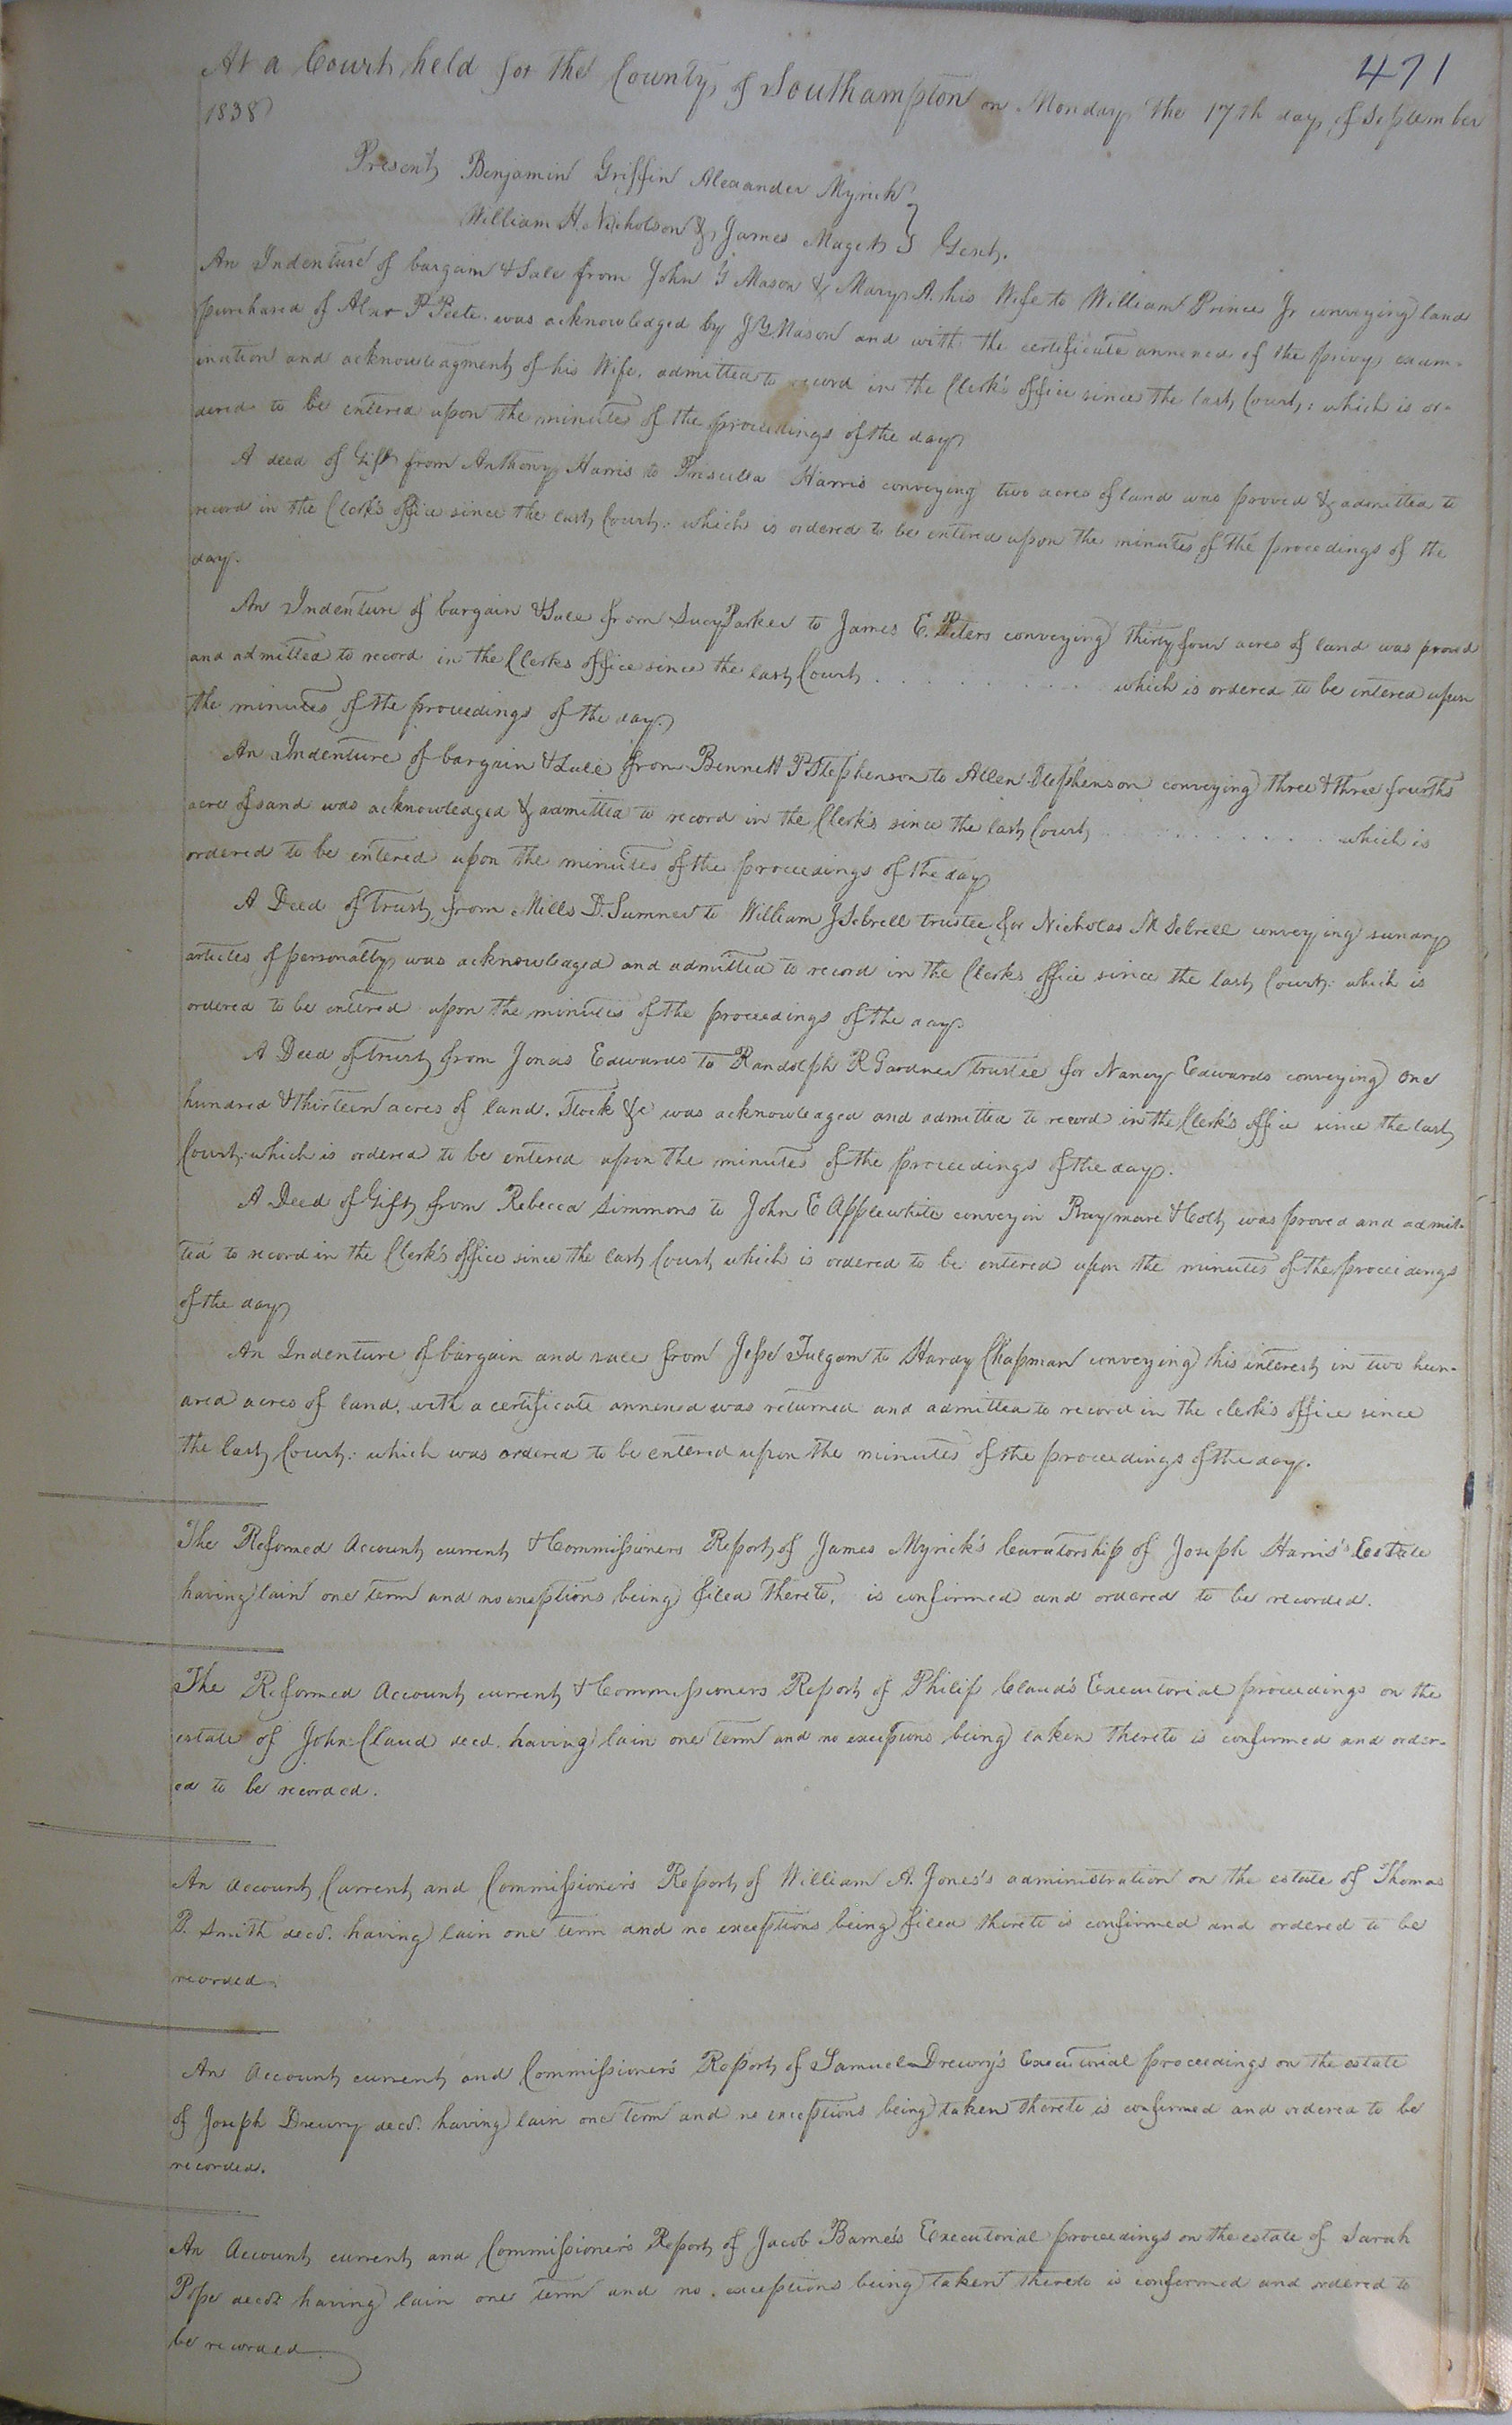 471
At a Court held for the County of Southampton on Monday the 17th day of September
1838
Present Benjamin Griffin Alexander Myrick
William H. Nicholson & James Magett Gent.
An Indenture of bargain & Sale from John Y Mason & Mary A. his Wife to William Prince Jr conveying land
purchased of Alexr P Peete. was acknowledged by J Y. Mason and with the certificate annexed of the privy exam-
ination and acknowledgment of his Wife, admitted to record in the Clerk's office since the last Court: which is or-
dered to be entered upon the minutes of the proceedings of the day
A deed of Gift from Anthony Harris to Priscilla Harris conveying two acres of land was proved & admitted to
record in the Clerk's office since the last Court: which is ordered to be entered upon the minutes of the proceedings of the
day.
An Indenture of bargain & Sale from Lucy Parker to James E. Peters conveying thirty four acres of land was proved
and admitted to record in the Clerks office since the last Court . . . . . . . . . . . which is ordered to be entered upon
the minutes of the proceedings of the day.
An Indenture of bargain & Sale from Bennett P Stephenson to Allen Stephenson conveying three & three fourths
acre of sand was acknowledged & admitted to record in the Clerk's since the last Court . . . . . . . . . . . which is
ordered to be entered upon the minutes of the proceedings of the day
A Deed of Trust from Mills D. Sumner to William J Sebrell trustee for Nicholas M Sebrell conveying sundry
articles of personalty was acknowledged and admitted to record in the Clerks office since the last Court: which is
ordered to be entered upon the minutes of the proceedings of the day
A Deed of trust from Jonas Edwards to Randolph R Gardner trustee for Nancy Edwards conveying one
hundred & thirteen acres of land. Stock &c was acknowledged and admitted to record in the Clerk's office since the last
Court: which is ordered to be entered upon the minutes of the proceedings of the day.
A Deed of Gift from Rebecca Simmons to John E Applewhite conveyin Bay mare & Colt was proved and admit-
ted to record in the Clerk's office since the last Court which is ordered to be entered upon the minutes of the proceedings
of the day
An Indenture of bargain and sale from Jesse Fulgam to Hardy Chapman conveying his interest in two hun-
dred acres of land, with a certificate annexed was returned and admitted to record in the clerk's office since
the last Court: which was ordered to be entered upon the minutes of the proceedings of the day.
The Reformed Account current & Commissioners Report of James Myrick's Curatorship of Joseph Harris's Estate
having lain one term and no exceptions being filed thereto, is confirmed and ordered to be recorded.
The Reformed Account current & Commissioners Report of Philip Claud's Executorial proceedings on the
estate of John Claud decd. having lain one term and no exceptions being taken thereto is confirmed and order-
ed to be recorded.
An account Current and Commissioner's Report of William A. Jones's administration on the estate of Thomas
B. Smith decd. having lain one term and no exceptions being filed thereto is confirmed and ordered to be
recorded.
An Account current and Commissioner's Report of Samuel Drewry's Executorial proceedings on the estate
of Joseph Drewry decd. having lain one term and no exceptions being taken thereto is confirmed and ordered to be
recorded.
An Account current and Commissioner's Report of Jacob Barnes's Executorial proceedings on the estate of Sarah
Pope decd. having lain one term and no exceptions being taken thereto is confirmed and ordered to
be recorded